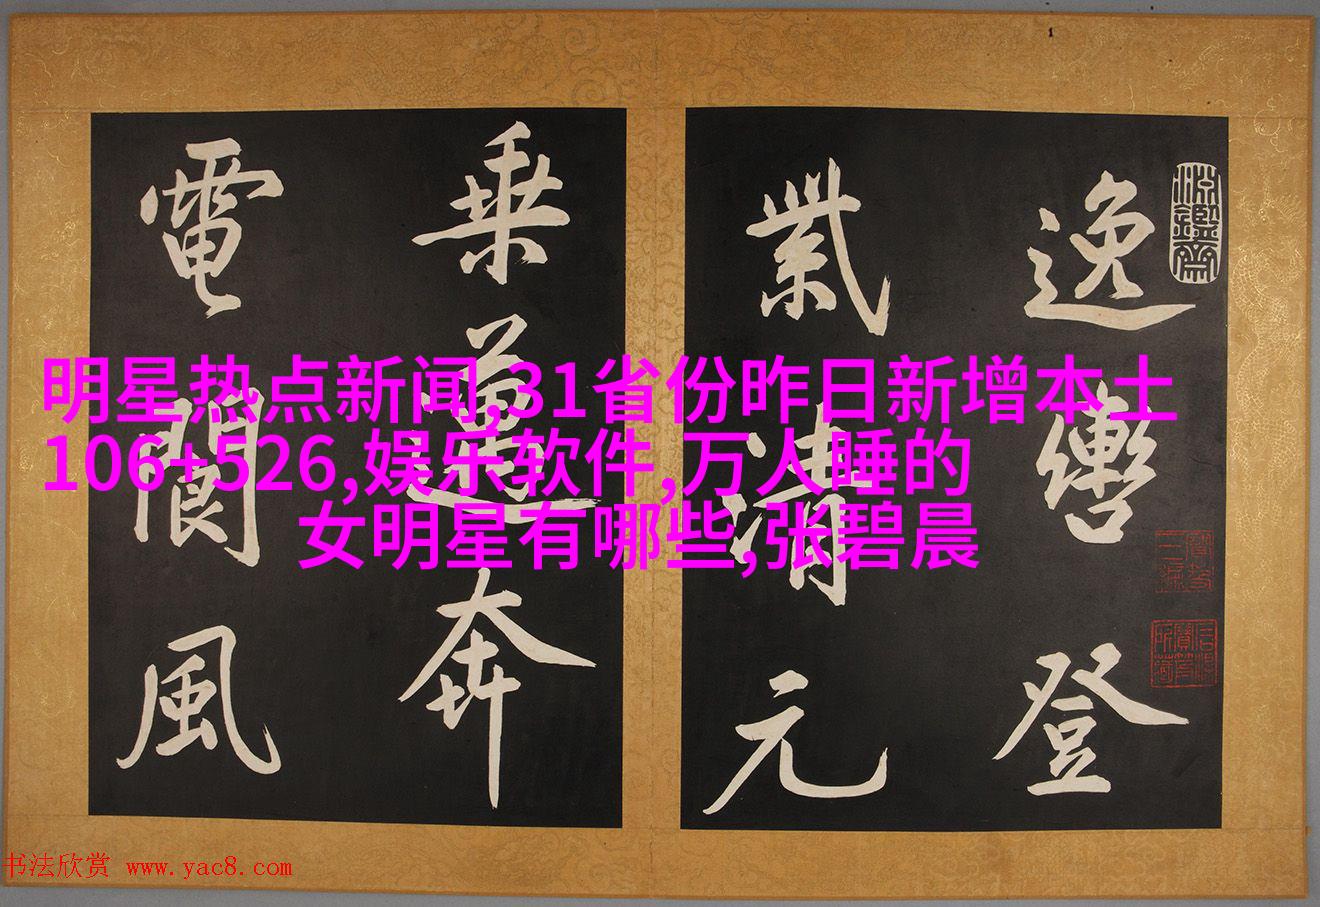 逸轡登
紫清元
乘邁奔
電閬風
明星热点新闻,31省份昨日新增本土
106+526,娱乐软件,万人睡的
女明星有哪些,张碧晨
书法欣赏 www.yac8.com